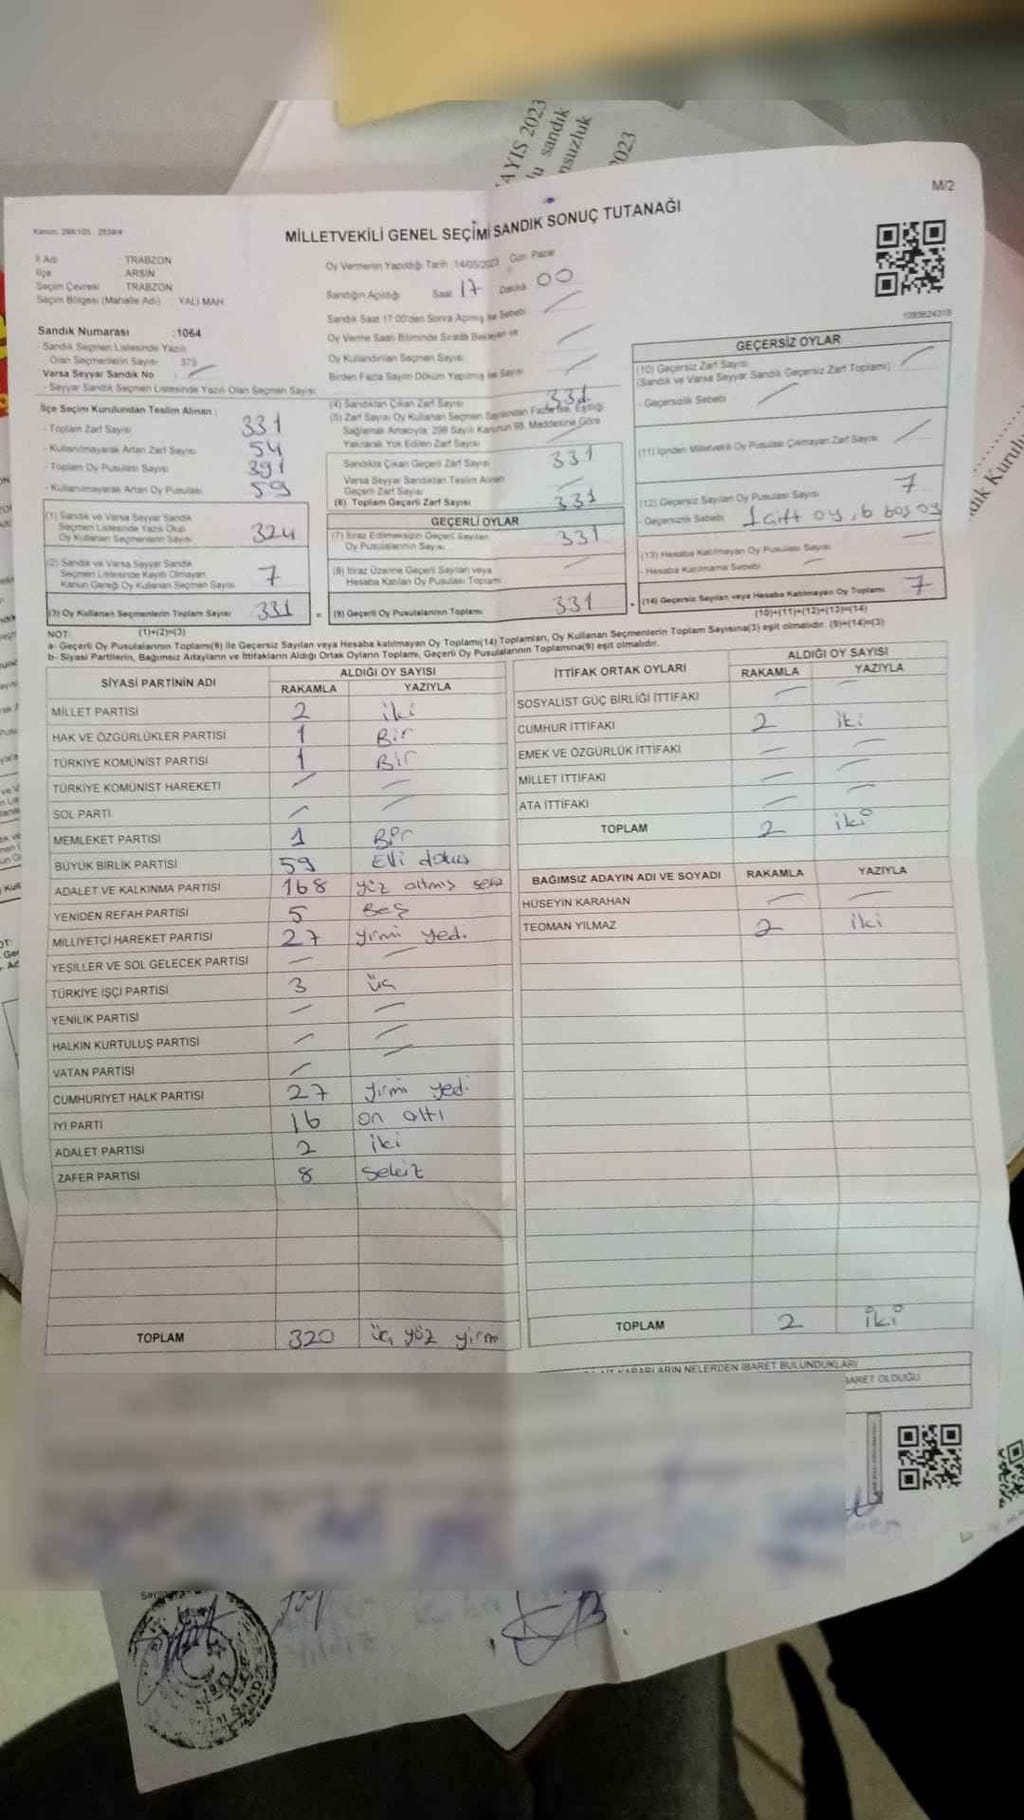 AYIS 2023
lu sandık
nsuzluk
2023
M/2
MİLLETVEKİLİ GENEL SEÇİMİ SANDIK SONUÇ TUTANAĞI
İl Adı TRABZON
İlçe ARSİN
Seçim Çevresi TRABZON
Seçim Bölgesi (Mahalle Adı) YALI MAH.
Sandık Numarası :1064
- Sandık Seçmen Listesinde Yazılı
Olan Seçmenlerin Sayısı 375
Varsa Seyyar Sandık No
- Seyyar Sandık Seçmen Listesinde Yazılı Olan Seçmen Sayısı
Oy Vermenin Yapıldığı Tarih :14/05/2023 Gün Pazar
Sandığın Açıldığı Saat 17 Dakika 00
Sandık Saat 17:00'den Sonra Açılmış ise Sebebi
Oy Verme Saati Bitiminde Sırada Bekleyen ve
Oy Kullandırılan Seçmen Sayısı
Birden Fazla Sayım Döküm Yapılmış ise Sayısı
İlçe Seçim Kurulundan Teslim Alınan :
- Toplam Zarf Sayısı 331
- Kullanılmayarak Artan Zarf Sayısı 54
- Toplam Oy Pusulası Sayısı 391
- Kullanılmayarak Artan Oy Pusulası 59
(1) Sandık ve Varsa Seyyar Sandık
Seçmen Listesinde Yazılı Olup
Oy Kullanan Seçmenlerin Sayısı 324
(2) Sandık ve Varsa Seyyar Sandık
Seçmen Listesinde Kayıtlı Olmayan
Kanun Gereği Oy Kullanan Seçmen Sayısı 7
(3) Oy Kullanan Seçmenlerin Toplam Sayısı 331
(1)+(2)=(3)
(4) Sandıktan Çıkan Zarf Sayısı 331
(5) Zarf Sayısı Oy Kullanan Seçmen Sayısından Fazla ise, Eşitliği
Sağlamak Amacıyla, 298 Sayılı Kanunun 98. Maddesine Göre
Yakılarak Yok Edilen Zarf Sayısı
Sandıkta Çıkan Geçerli Zarf Sayısı 331
Varsa Seyyar Sandıktan Teslim Alınan
Geçerli Zarf Sayısı
(6) Toplam Geçerli Zarf Sayısı 331
GEÇERLİ OYLAR
(7) İtiraz Edilmeksizin Geçerli Sayılan
Oy Pusulalarının Sayısı 331
(8) İtiraz Üzerine Geçerli Sayılan veya
Hesaba Katılan Oy Pusulası Toplamı
= (9) Geçerli Oy Pusulalarının Toplamı 331
GEÇERSİZ OYLAR
(10) Geçersiz Zarf Sayısı
(Sandık ve Varsa Seyyar Sandık Geçersiz Zarf Toplamı)
- Geçersizlik Sebebi
(11) İçinden Milletvekili Oy Pusulası Çıkmayan Zarf Sayısı
(12) Geçersiz Sayılan Oy Pusulası Sayısı 7
- Geçersizlik Sebebi 1 Çift oy, 6 boş oy
(13) Hesaba Katılmayan Oy Pusulası Sayısı
- Hesaba Katılmama Sebebi
+ (14) Geçersiz Sayılan veya Hesaba Katılmayan Oy Toplamı 7
(10)+(11)+(12)+(13)=(14)
NOT:
a- Geçerli Oy Pusulalarının Toplamı(9) ile Geçersiz Sayılan veya Hesaba katılmayan Oy Toplamı(14) Toplamları, Oy Kullanan Seçmenlerin Toplam Sayısına(3) eşit olmalıdır. (9)+(14)=(3)
b- Siyasi Partilerin, Bağımsız Adayların ve İttifakların Aldığı Ortak Oyların Toplamı, Geçerli Oy Pusulalarının Toplamına(9) eşit olmalıdır.
SİYASİ PARTİNİN ADI ALDIĞI OY SAYISI
RAKAMLA YAZIYLA
MİLLET PARTİSİ 2 iki
HAK VE ÖZGÜRLÜKLER PARTİSİ 1 Bir
TÜRKİYE KOMÜNİST PARTİSİ 1 Bir
TÜRKİYE KOMÜNİST HAREKETİ
SOL PARTİ
MEMLEKET PARTİSİ 1 Bir
BÜYÜK BİRLİK PARTİSİ 59 Elli dokus
ADALET VE KALKINMA PARTİSİ 168 yüz altmış seki
YENİDEN REFAH PARTİSİ 5 Beş
MİLLİYETÇİ HAREKET PARTİSİ 27 yirmi yedi
YEŞİLLER VE SOL GELECEK PARTİSİ
TÜRKİYE İŞÇİ PARTİSİ 3 üç
YENİLİK PARTİSİ
HALKIN KURTULUŞ PARTİSİ
VATAN PARTİSİ
CUMHURİYET HALK PARTİSİ 27 yirmi yedi
İYİ PARTİ 16 on altı
ADALET PARTİSİ 2 iki
ZAFER PARTİSİ 8 sekiz
TOPLAM 320 üç yüz yirm
İTTİFAK ORTAK OYLARI ALDIĞI OY SAYISI
RAKAMLA YAZIYLA
SOSYALİST GÜÇ BİRLİĞİ İTTİFAKI
CUMHUR İTTİFAKI 2 iki
EMEK VE ÖZGÜRLÜK İTTİFAKI
MİLLET İTTİFAKI
ATA İTTİFAKI
TOPLAM 2 iki
BAĞIMSIZ ADAYIN ADI VE SOYADI RAKAMLA YAZIYLA
HÜSEYİN KARAHAN
TEOMAN YILMAZ 2 iki
TOPLAM 2 iki
KARARLARIN NELERDEN İBARET BULUNDUKLARI
BARET OLDUĞU